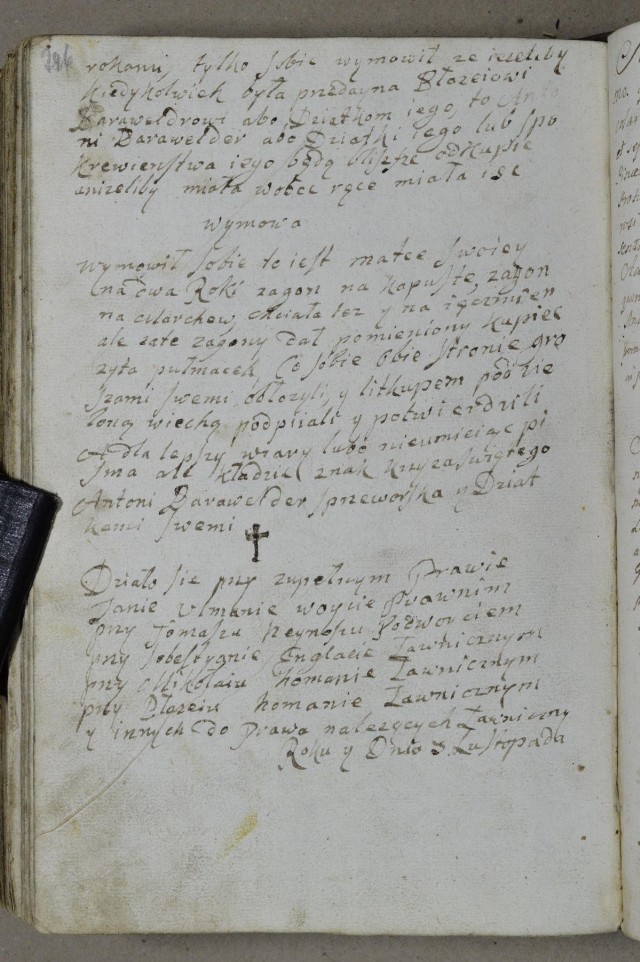 196
rokami, tylko sobie wymowił ze iezeliby
kiedykolwiek była przedayna Błazeiowi
Baraweldrowi abo Dziatkom iego, to Anto
ni Barawelder abo Dziatki iego lub spo
krewieństwa iego będą bliższe odkupić
anizeliby miała wobce ręce miała isc
wymowa
wymowił sobie to iest matce swoiey
na dwa Roki zagon na kapustę, zagon
na Marchew, chciała tez y na ięczmien
ale zate zagony dał pomieniony kupiec
zyta pułmacek, Co sobie obie stronie gro
szami swemi obłozyli, y litkupem pod zie
loną wiechą podpijali y potwierdzili
A dla lepszy wiary lubo nieumieiąc pi
sma ale kładzie znak krzyza świętego
Antoni Barawelder sprzeworska y Dziat
kami swemi †
Działo sie przy zupełnym Prawie
Janie Ulmanie woycie Prawnim
przy Tomaszu Reynoszu Podwoyciem
przy Sobestyanie Englocie Ławnicznym
przy Mikołaiu homanie Ławnicznym
przy Błazeiu homanie Ławnicznym
y innych do Prawa nalezących Ławniczny
Roku y Dnia 3 Lustopada